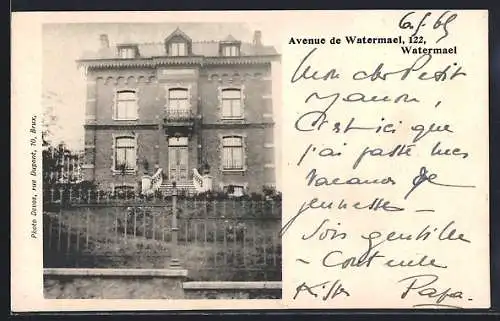 6.5.65
Avenue de Watermael, 122,
Watermael
Mon cher Petit
Manon,
C'est ici que
j'ai passé mes
vacances de
jeunesse –
Sois gentille
– Continue –
Kiss Papa.
Photo Devos, rue Dupont, 10, Brux.